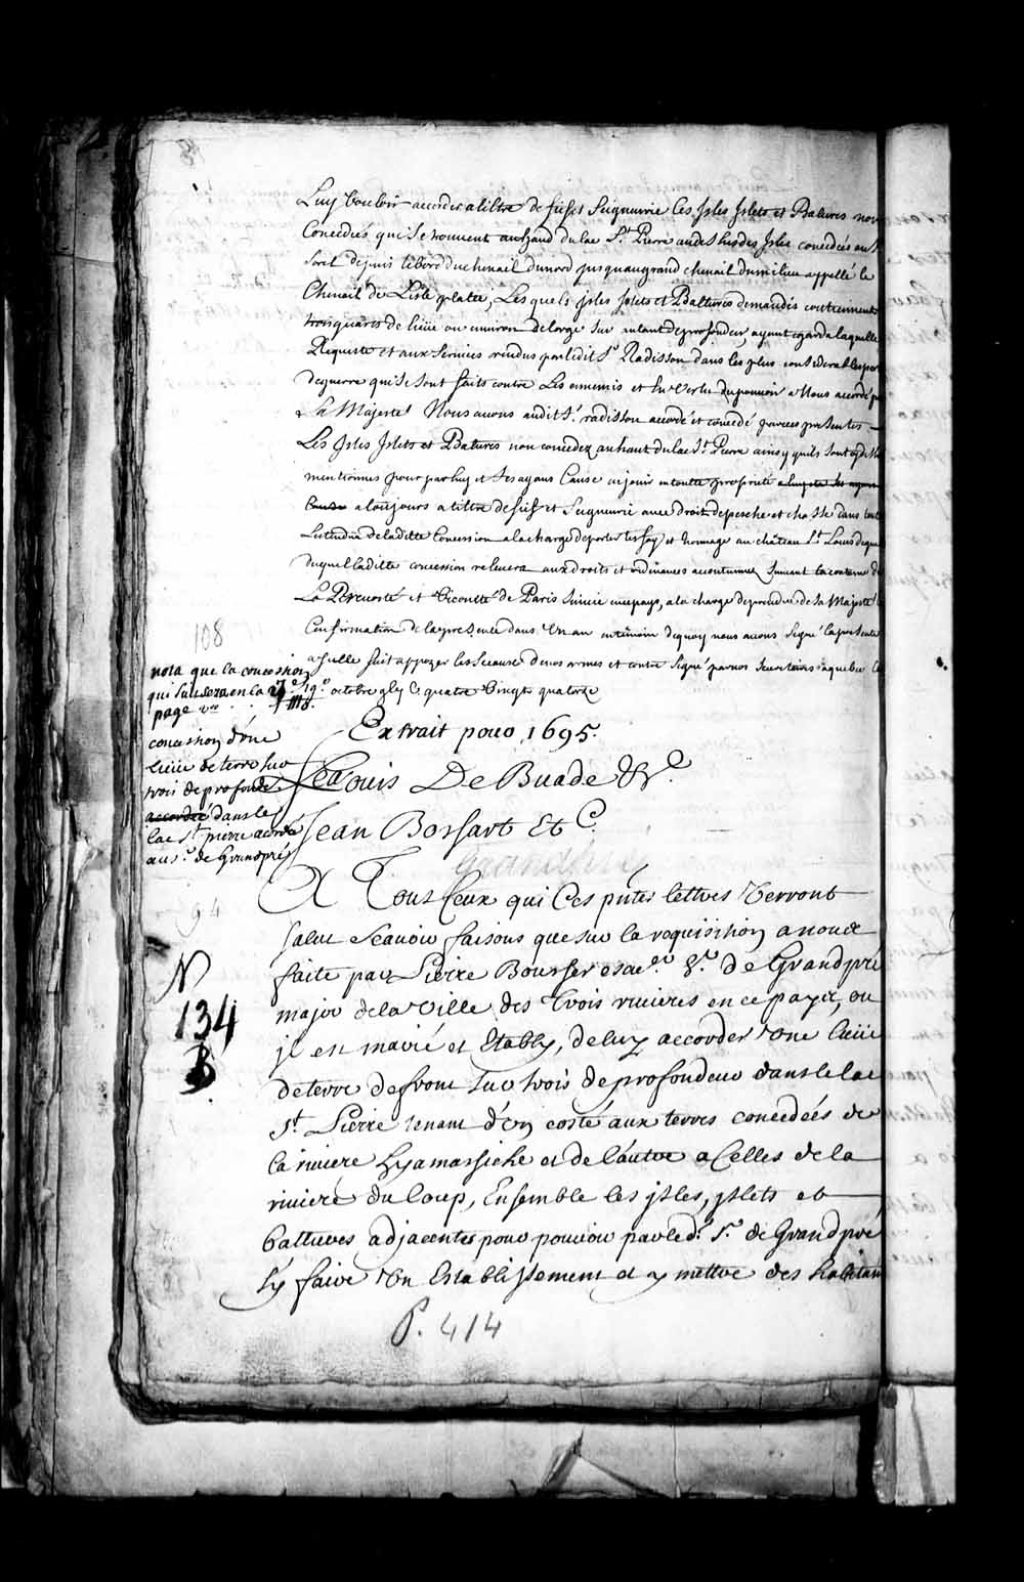 Luy vouloir accorder a tiltre de fief et Seigneurie Les Isles Islets et Batures non
Concedées qui se trouvent au haud du lac St. Pierre au dessus des Isles concedées au S
Sorel depuis le bord du chenail du nord jusqu'au grand chenail du milieu appellé le
Chenail de L'isle platte, Lesquels isles islets et Battures demandés contiennent
trois quarts de lieüe ou environ de large sur autant de profondeur, ayant egard a laquelle
Requeste et aux services rendus par ledit Sr. Radisson dans les plus considerables par
de guerre qui se sont faits contre Les ennemis et En Vertu du pouvoir a Nous accordé p
Sa Majesté Nous avons audit Sr. radisson accordé et concedé par ces presentes
Les Isles Islets et Batures non concedez au haut du lac St. Pierre ainsy qu'ils sont cy dess
mentionnés pour par luy et ses ayans Cause en jouir en toutte proprieté
a toujours a tiltre de fief et Seigneurie avec droit de pesche et chasse dans tout
L'etendüe de laditte Concession a la charge de porter les foy et hommage au château St. Louis de que
duquel laditte concession relevera aux droits et redevances accoutumés suivant la coutume de
La Prevosté et Viconté de Paris suivie en ce pays, a la charge de prendre de Sa Majesté
Confirmation de la presente dans Un an en temoin de quoy nous avons Signé la presente
a jcelle fait apposer les sceaux de nos armes et contre signé par nos Secretaires a quebec le
19e. octobre gbj C quatre Vingt quatorze
108
nota que la concession
qui suit sera en la
page
Extrait pour 1695.
concession d'une
lieüe de terre sur
trois de profonde
accordée dans le
lac St. pierre accordé
au Sr. de Grandpré
Louis De Buade &c.
Jean Bossart Et C.
Grandpré
A Tous Ceux qui Ces pntes lettres Verront
Salut Scavoir faisons que sur la requisition a nous
faite par Pierre Boucher escer. Sr. de Grandpré
major de la Ville des Trois rivieres en ce payis, ou
jl est marié et Etably, de luy accorder Une lieüe
de terre de front sur trois de profondeur dans le lac
St. Pierre tenant d'un costé aux terres concedées de
la riviere Yyamassiche et de l'autre a Celles de la
riviere du Loup, Ensemble les jsles, jslets et
battures adjacentes pour pouvoir par led. Sr. de Grandpré
Ly faire Un Establissement et y mettre des habitan
94
N
134
B
P. 414